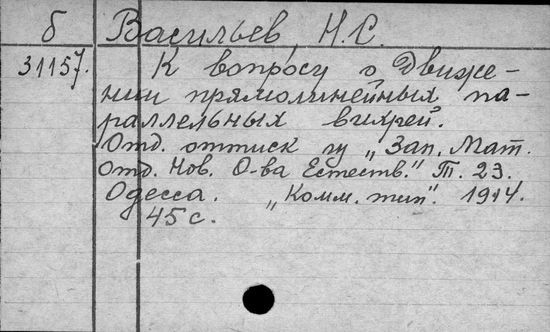 б Васильев, Н.С.
31157. К вопросу о движе-
нии прямолинейных па-
раллельных вихрей.
Отд. оттиск из „Зап. Мат.
Отд. Нов. О-ва Естеств." Т. 23.
Одесса. „Комм. тип". 1914.
45 с.